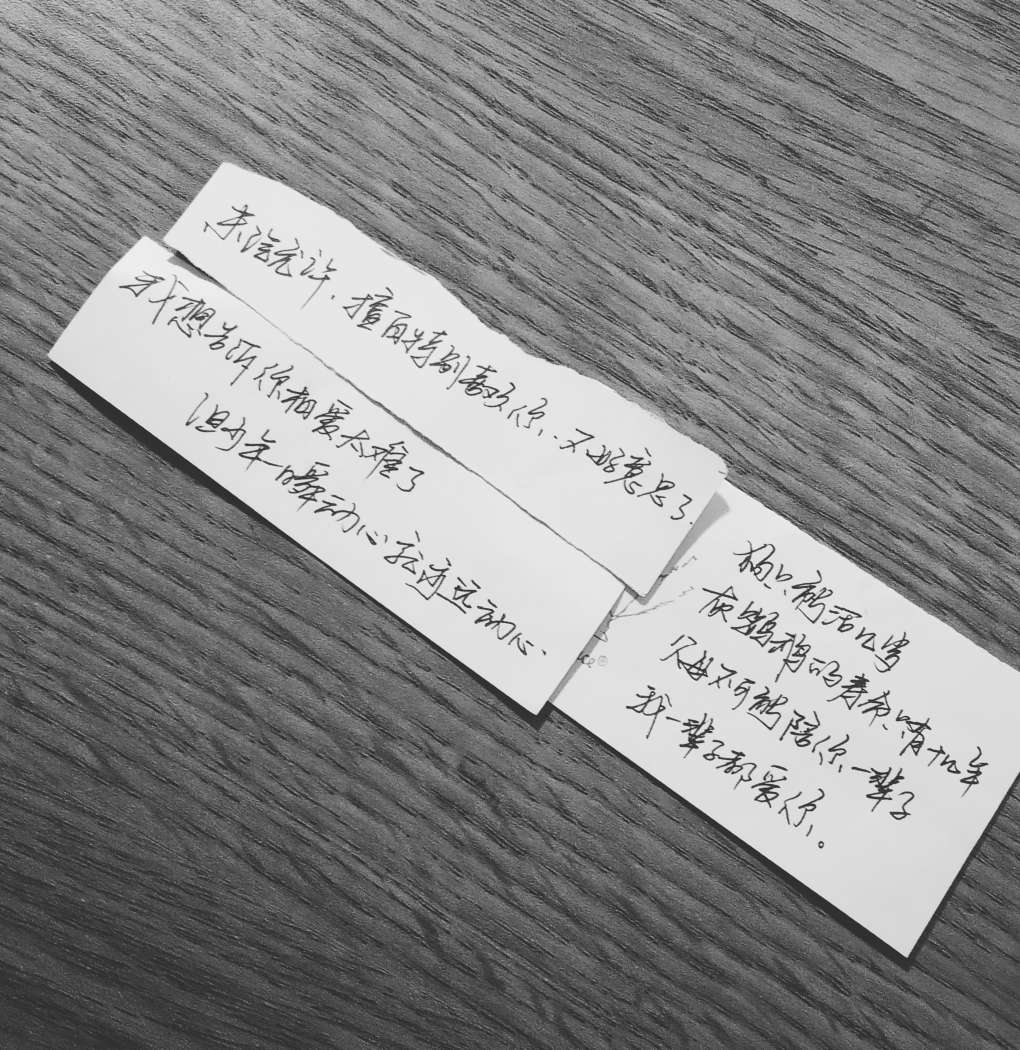 未经允许，擅自特别喜欢你，不好意思了.
我想告诉你相爱太难了
但少年一瞬动心就永远动心
狗只能活几岁
灰鹦鹉的寿命只有十几年
父母不可能陪你一辈子
我一辈子都爱你。